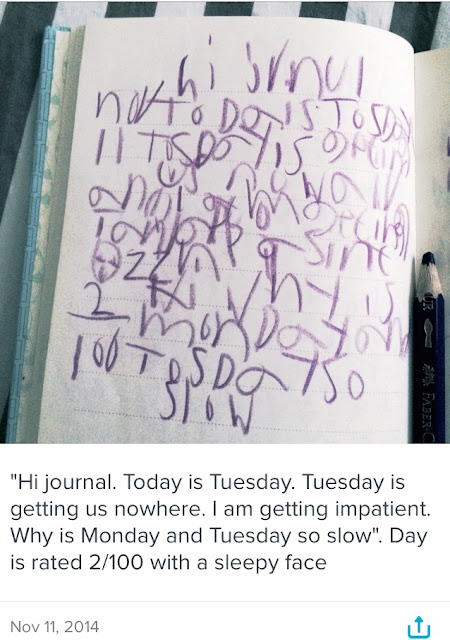 hi jrnul
not TODay is TOSDay
11 TOSDay is geting
us nowaii
and i am geting
ZZ
2
100
Why is
monDay an
TOSDay so
slow
FABER-C
"Hi journal. Today is Tuesday. Tuesday is
getting us nowhere. I am getting impatient.
Why is Monday and Tuesday so slow". Day
is rated 2/100 with a sleepy face
Nov 11, 2014